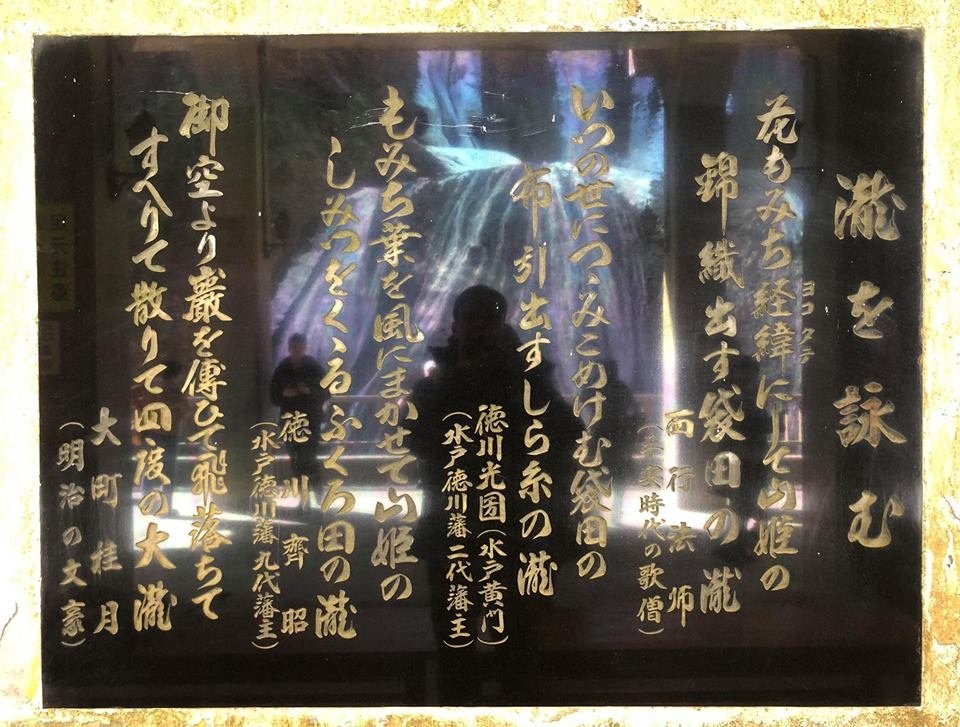 瀧を詠む
花もみち経緯にして山姫の
ヨコタテ
錦織出す袋田の瀧
西行法師
(平安時代の歌僧)
いつの世につゝみこめけむ袋田の
布引出すしら糸の瀧
徳川光圀(水戸黄門)
(水戸徳川藩二代藩主)
もみち葉を風にまかせて山姫の
しみつをくくるふくろ田の瀧
徳川齊昭
(水戸徳川藩九代藩主)
御空より巖を傳ひて飛落ちて
すへりて散りて四段の大瀧
大町桂月
(明治の文豪)